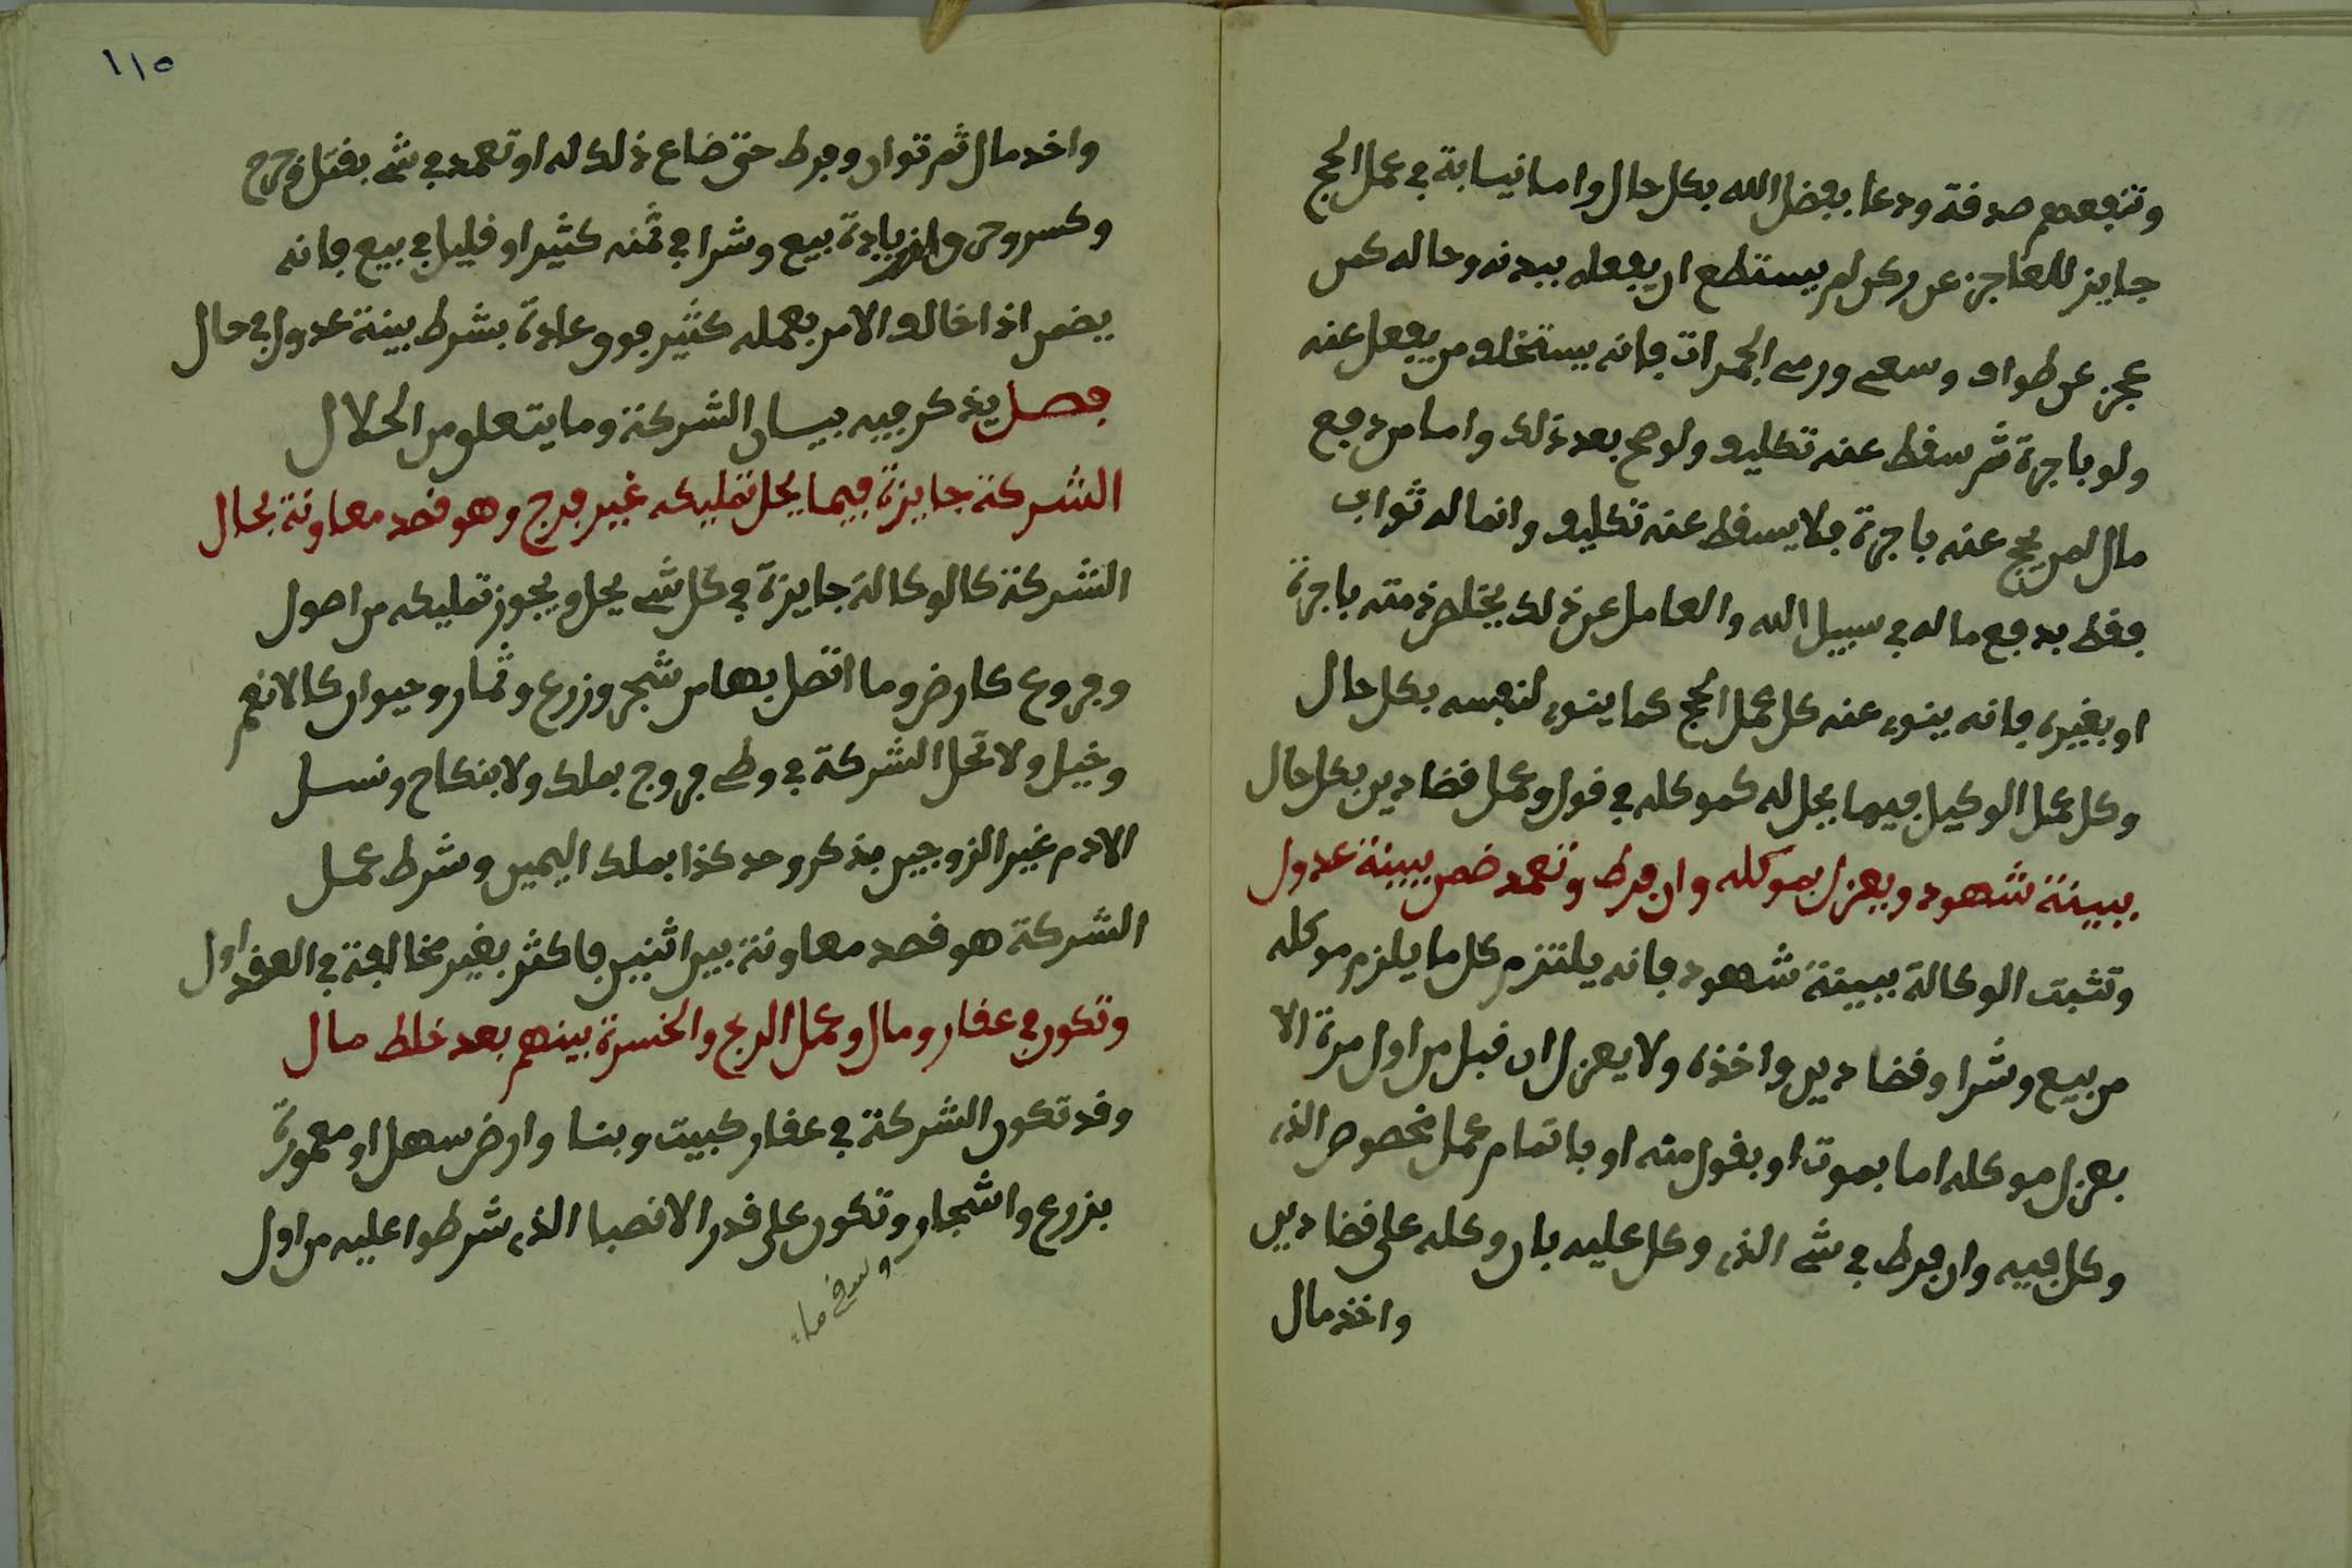 وتنفعهم صدقة ودعا بفضل الله بكل حال واما نيابة في عمل الحج
جايز للعاجز عن ركن لم يستطع ان يفعله ببدنه وحاله كمن
عجز عن طواف وسعي ورمي الجمرات فانه يستخلف من يفعل عنه
ولو باجرة ثم سقط عنه تكليف ولو صح بعد ذلك واما من دفع
مال لمن يحج عنه باجرة فلا يسقط عنه تكليف وانما له ثواب
فقط بدفع ماله في سبيل الله والعامل عن ذلك يخلص ذمته باجرة
او بغيره فانه ينوي عنه كل عمل الحج كما ينوي لنفسه بكل حال
وكل عمل الوكيل فيما يحل له كموكله في قول وعمل قضا دين بكل حال
ببينة شهود ويعزل بموكله وان فرط وتعمد ضمن ببينة عدول
وتثبت الوكالة ببينة شهود فانه يلتزم كل ما يلزم موكله
من بيع وشرا وقضا دين واخذه ولا يعزل ان قبل من اول مرة الا
بعزل موكله اما بموت او بقول منه او باتمام عمل مخصوص الذي
وكل فيه وان فرط في شي الذي وكل عليه بان وكله على قضا دين
واخذ مال
١١٥
واخد مال ثم توان وفرط حتى ضاع ذلك له او تعمد في شي بقتل وجرح
وكسر وحرق زيادة بيع وشرا في ثمنه كثير او قليل في بيع فانه
يضمن اذا خالف الامر بعمله كثير فوق عادة بشرط بينة عدول في حال
فصل يذكر فيه بيان الشركة وما يتعلق من الحلال
الشركة جايزة فيما يحل تمليكه غير فرج وهو قصد معاونة بحال
الشركة كالوكالة جايزة في كل شي يحل ويجوز تمليكه من اصول
وفروع كارض وما اتصل بها من شجر وزرع وثمار وحيوان كالانعم
وخيل ولا تحل الشركة في وطي فروج بملك ولا بنكاح ونسل
الادم غير الزوجين بذكر وحد كذا بملك اليمين وشرط عمل
الشركة هو قصد معاونة بين اثنين فاكثر بغير مخالفة في العقد اول
وتكون في عقار ومال وعمل الربح والخسرة بينهم بعد خلط مال
وقد تكون الشركة في عقار كبيت وبنا وارض سهل او معمورة
بزرع واشجار وتكون على قدر الانصبا الذي شرطوا عليه من اول
وسقي ماء